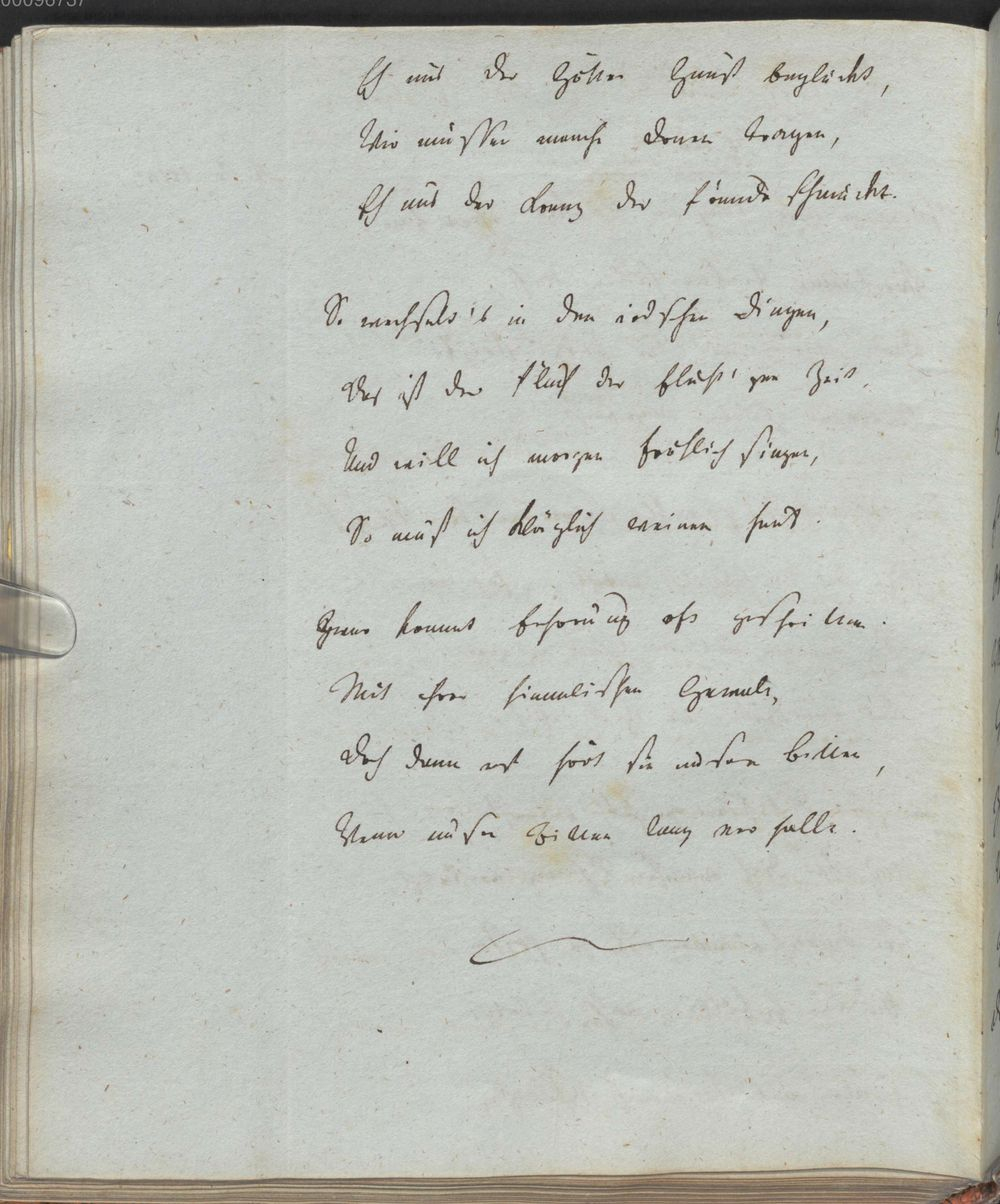 00096737
Eh uns der Götter Gunst beglückt,
Wir müssen manche Dornen tragen,
Eh uns der Kranz der Freude schmückt.
So wechselt's in den irdschen Dingen,
Das ist der Fluch der flücht'gen Zeit,
Und will ich morgen fröhlich singen,
So muß ich kläglich weinen heut.
Zwar kommt Erhörung oft geschritten
Mit ihrer himmlischen Gewalt,
Doch dann erst hört sie unsre Bitten,
Wenn unsre Bitten lang verhallt.